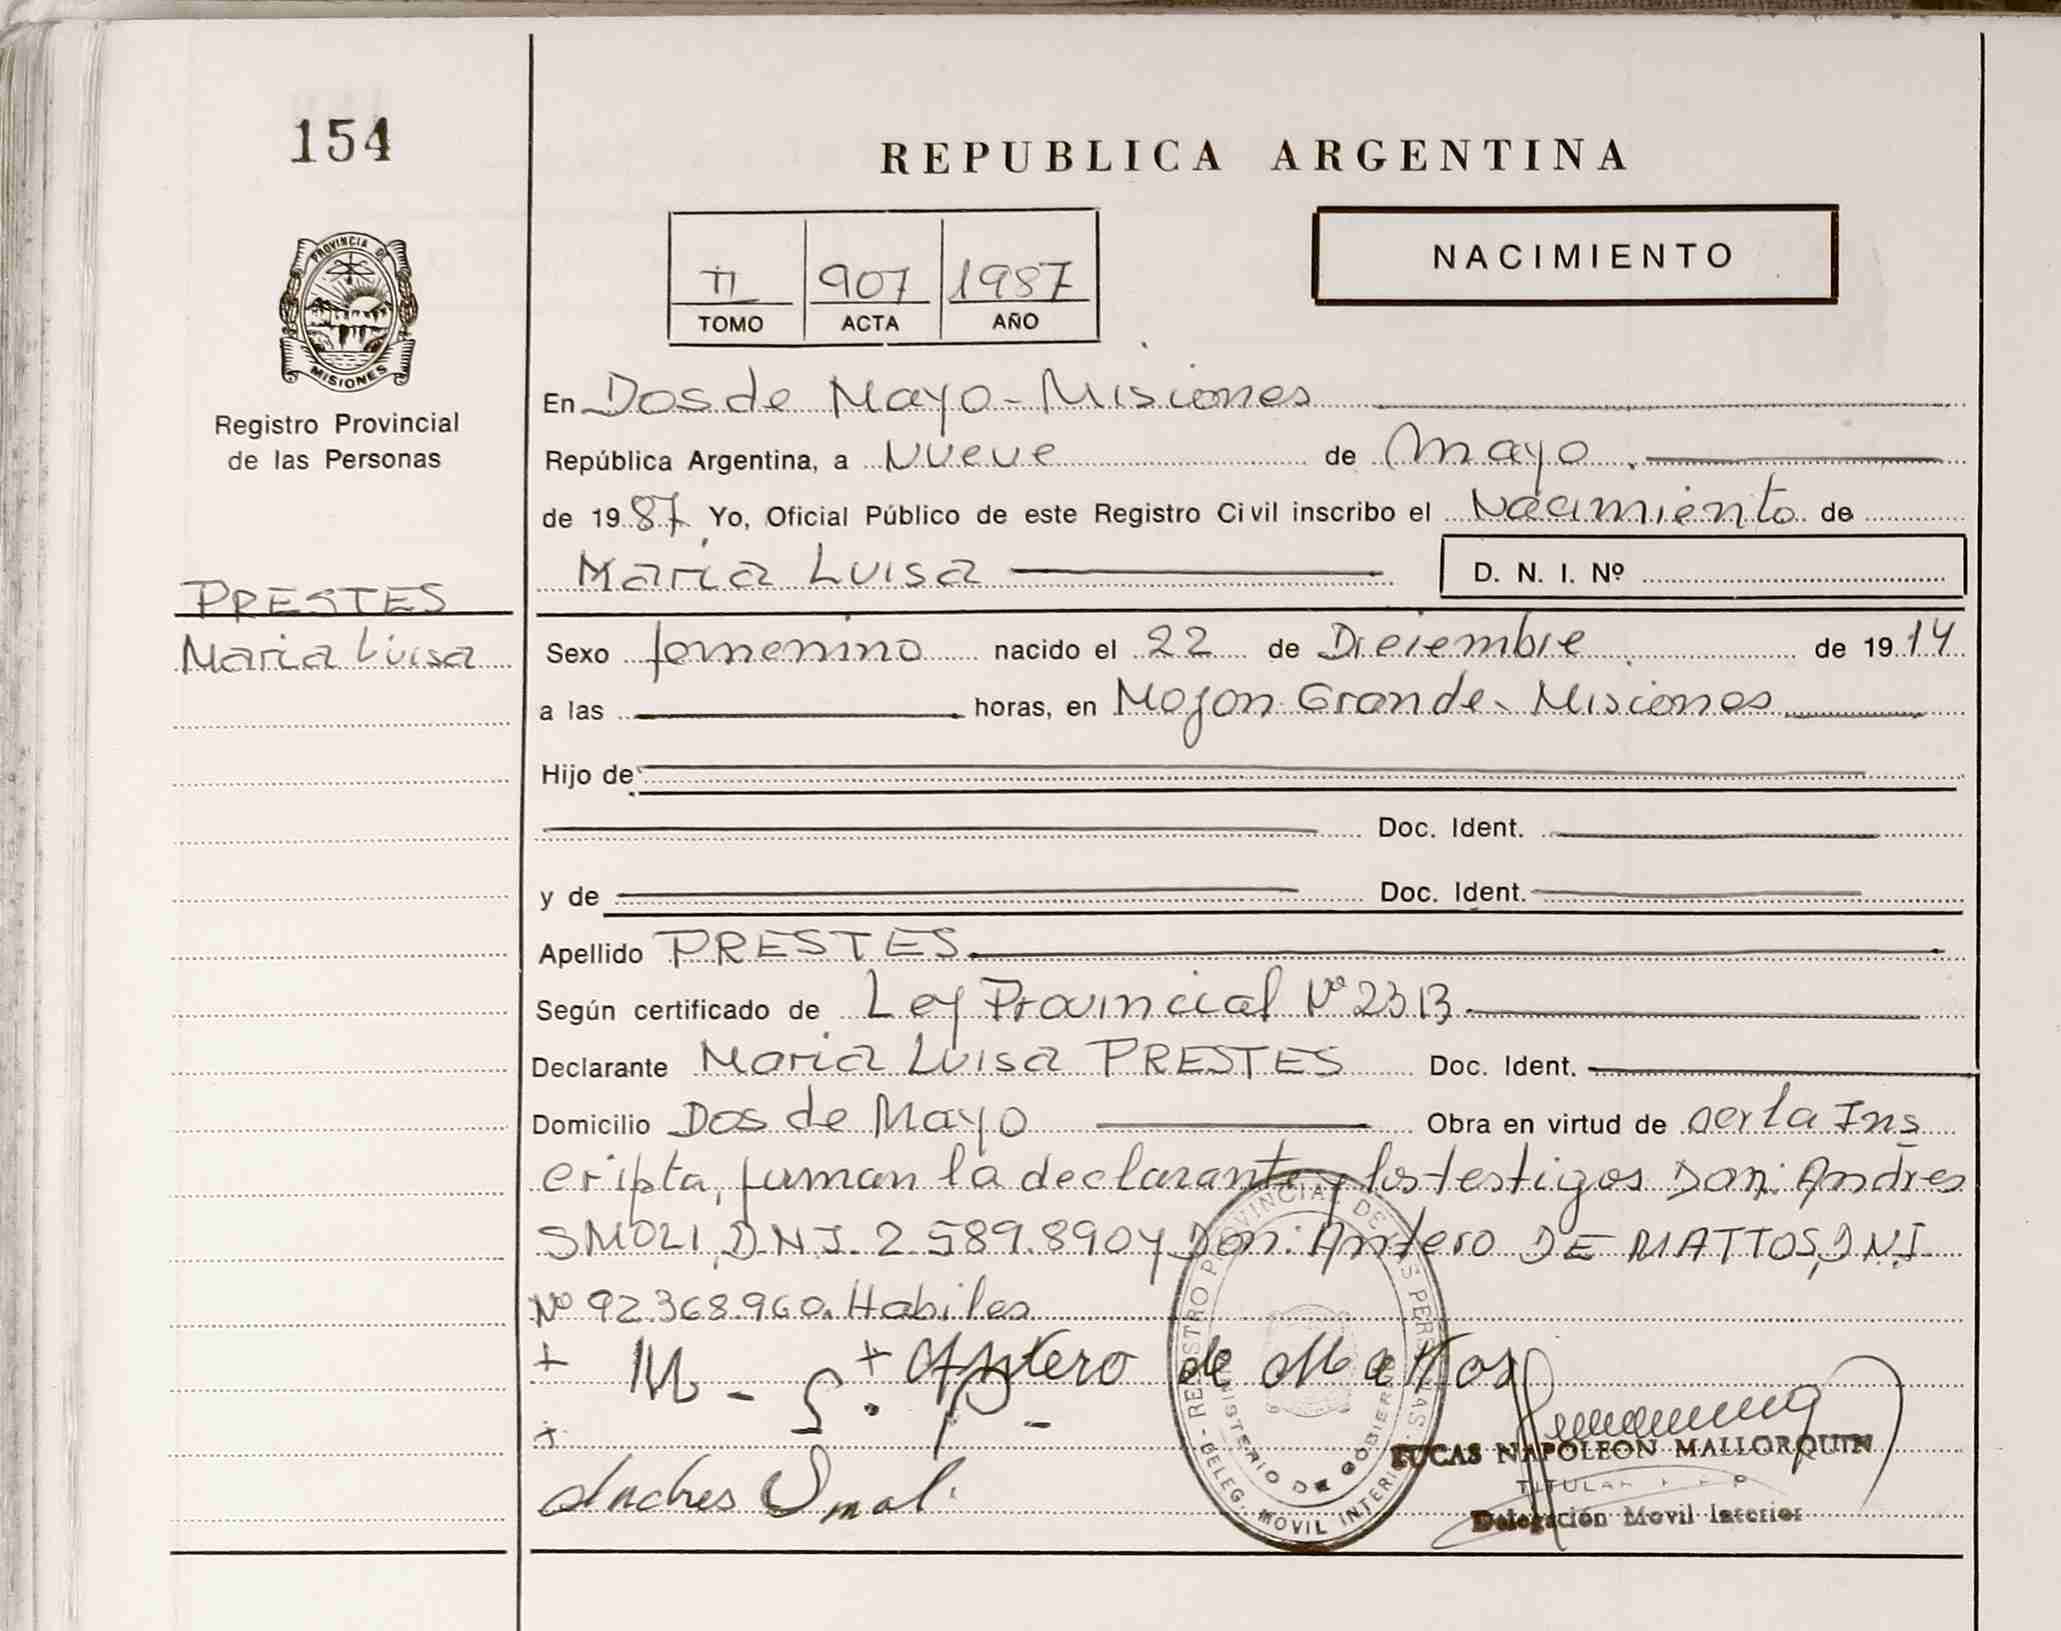 154
REPUBLICA ARGENTINA
NACIMIENTO
II 907 1987
TOMO ACTA AÑO
PROVINCIA DE
MISIONES
Registro Provincial
de las Personas
En Dos de Mayo - Misiones
República Argentina, a Nueve de Mayo
de 1987 Yo, Oficial Público de este Registro Civil inscribo el Nacimiento de
Maria Luisa D. N. I. Nº
PRESTES
Maria Luisa
Sexo femenino nacido el 22 de Diciembre de 1914
a las horas, en Mojon Grande - Misiones
Hijo de
Doc. Ident.
y de Doc. Ident.
Apellido PRESTES
Según certificado de Ley Provincial Nº 2313
Declarante Maria Luisa PRESTES Doc. Ident.
Domicilio Dos de Mayo Obra en virtud de Ins
cripta, firman la declarante y los testigos Don: Andres
SMOLI, D.N.I. 2.589.890 y Don: Antero DE MATTOS, D.N.I.
Nº 92.368.960. Habiles
+ M - + Antero de Mattos
S. P -
+
Andres Smoli
REGISTRO PROVINCIAL DE LAS PERSONAS - DELEG. MOVIL INTERIOR
MINISTERIO DE GOBIERNO
LUCAS NAPOLEON MALLORQUIN
TITULAR
Delegación Movil Interior